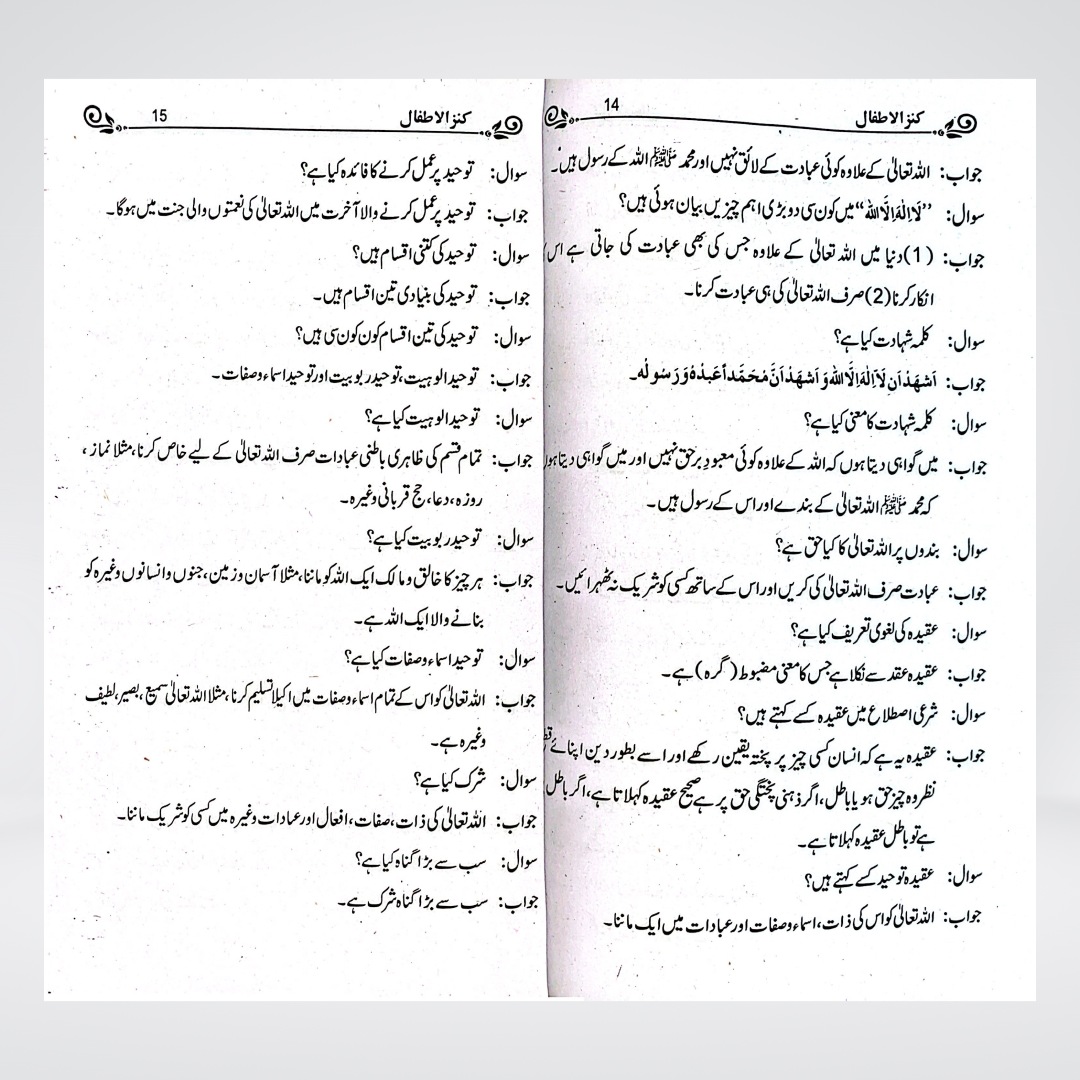 کنز الاطفال 14
جواب: اللہ تعالیٰ کے علاوہ کوئی عبادت کے لائق نہیں اور محمد ﷺ اللہ کے رسول ہیں۔
سوال: ’’لَا اِلٰہَ اِلَّا اللہ‘‘ میں کون سی دو بڑی اہم چیزیں بیان ہوئی ہیں؟
جواب: (1) دنیا میں اللہ تعالیٰ کے علاوہ جس کی بھی عبادت کی جاتی ہے اس
انکار کرنا (2) صرف اللہ تعالیٰ کی ہی عبادت کرنا۔
سوال: کلمہ شہادت کیا ہے؟
جواب: اَشْهَدُ اَنْ لَّا اِلٰهَ اِلَّا اللهُ وَ اَشْهَدُ اَنَّ مُحَمَّدًا عَبْدُهٗ وَ رَسُوْلُهٗ۔
سوال: کلمہ شہادت کا معنی کیا ہے؟
جواب: میں گواہی دیتا ہوں کہ اللہ کے علاوہ کوئی معبودِ برحق نہیں اور میں گواہی دیتا ہوں
کہ محمد ﷺ اللہ تعالیٰ کے بندے اور اس کے رسول ہیں۔
سوال: بندوں پر اللہ تعالیٰ کا کیا حق ہے؟
جواب: عبادت صرف اللہ تعالیٰ کی کریں اور اس کے ساتھ کسی کو شریک نہ ٹھہرائیں۔
سوال: عقیدہ کی لغوی تعریف کیا ہے؟
جواب: عقیدہ عقد سے نکلا ہے جس کا معنی مضبوط (گرہ) ہے۔
سوال: شرعی اصطلاح میں عقیدہ کسے کہتے ہیں؟
جواب: عقیدہ یہ ہے کہ انسان کسی چیز پر پختہ یقین رکھے اور اسے بطور دین اپنائے
نظر وہ چیز حق ہو یا باطل، اگر ذہنی پختگی حق پر ہے صحیح عقیدہ کہلاتا ہے، اگر باطل
ہے تو باطل عقیدہ کہلاتا ہے۔
سوال: عقیدہ توحید کسے کہتے ہیں؟
جواب: اللہ تعالیٰ کو اس کی ذات، اسماء و صفات اور عبادات میں ایک ماننا۔
کنز الاطفال 15
سوال: توحید پر عمل کرنے کا فائدہ کیا ہے؟
جواب: توحید پر عمل کرنے والا آخرت میں اللہ تعالیٰ کی نعمتوں والی جنت میں ہوگا۔
سوال: توحید کی کتنی اقسام ہیں؟
جواب: توحید کی بنیادی تین اقسام ہیں۔
سوال: توحید کی تین اقسام کون کون سی ہیں؟
جواب: توحید الوہیت، توحید ربوبیت اور توحید اسماء وصفات۔
سوال: توحید الوہیت کیا ہے؟
جواب: تمام قسم کی ظاہری باطنی عبادات صرف اللہ تعالیٰ کے لیے خاص کرنا، مثلا نماز،
روزہ، دعا، حج قربانی وغیرہ۔
سوال: توحید ربوبیت کیا ہے؟
جواب: ہر چیز کا خالق و مالک ایک اللہ کو ماننا، مثلا آسمان و زمین، جنوں و انسانوں وغیرہ کو
بنانے والا ایک اللہ ہے۔
سوال: توحید اسماء وصفات کیا ہے؟
جواب: اللہ تعالیٰ کو اس کے تمام اسماء وصفات میں اکیلا تسلیم کرنا، مثلا اللہ تعالیٰ سمیع، بصیر، لطیف
وغیرہ ہے۔
سوال: شرک کیا ہے؟
جواب: اللہ تعالیٰ کی ذات، صفات، افعال اور عبادات وغیرہ میں کسی کو شریک ماننا۔
سوال: سب سے بڑا گناہ کیا ہے؟
جواب: سب سے بڑا گناہ شرک ہے۔